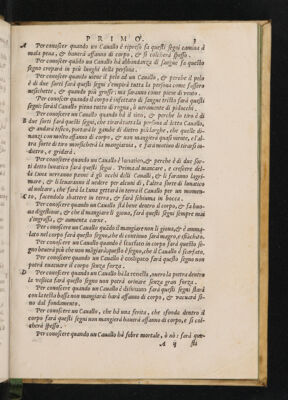 PRIMO. 3
A Per conoscer quando un Cauallo è ripreso fa questi segni camina à
mala pena, & hauerà affanno di corpo, & si colcherà spesso.
Per conoscer quãdo un Cauallo hà abbondanza di sangue fa questo
segno creparà in più luoghi della persona.
Per conoscer quando uiene il pelo ad un Cauallo, & perche il pelo
è di due sorti farà questi segni, & creparà tutta la persona come fossero
& quando più grossi; ma saranno come piene di uento.
Per conoscer quando il corpo è infettato di sangue tristo farà questi
segni: farà il Cauallo pieno tutto di rogna, & ueramente di pidocchi.
Per conoscer quando un Cauallo hà il tiro, & perche lo tiro è di
B due sorti farà questi segni, che tirarà tutta la persona al detto Cauallo,
& andarà tosico, portarà le gambe di dietro più larghe, che quelle dinanzi,
& hauerà affanno di corpo, & non mangiarà quasi niente, e l'altra
sorte di tiro moreschierà la morsicaria, e farà motiuo di tirarsi indietro,
e gridarà.
Per conoscer quando un Cauallo è lunatico, & perche è di due sorti
detto lunatico farà questi segni. Prima al mancare, e crescere della
Luna uerranno panni à gli occhi delli Caualli, & li faranno lagrimare,
& li tenerà à uedere per alcuni dì, l'altra sorte di lunatico
al uoltare, che farà la Luna gettarà in terra il Cauallo per un momento,
C facendolo sbattere in terra, & farà schiuma in bocca.
Per conoscer quando un Cauallo stà bene dentro di corpo, & fa buona
digestione, & che il mangiare li gioua, farà questi segni sempre mai
s'ingrassa, & aumenta carne.
Per conoscere un Cauallo quãdo il mangiare non li gioua, & è ammalato
nel corpo farà questo segno, che di continuo sarà magro, e fiacchato.
Per conoscere quando un Cauallo è scalfato in corpo farà questo segno
hauerà più che uno mõgiarà questo è segno, che il Cauallo è scorfato.
Per conoscer quando un Cauallo è costipato farà questo segno non
potrà euacuare il corpo senza forza.
D Per conoscer quando un Cauallo hà la renella, ouero la pietra dentro
la uessica farà questo segno non potrà orinare senza gran forza.
Per conoscere quando un Cauallo è disiunato farà questi segni starà
con la testa bassa non mangiarà hauerà affanno di corpo, & uacuarà sino
dal fondamento.
Per conoscere un Cauallo, che hà una ferita, che sfonda dentro il
corpo farà questi segni non mangiarà hauerà affanno di corpo, e si colcherà
spesso.
Per conoscere quando un Cauallo hà febre mortale, ò nò: farà questi
A ij sti